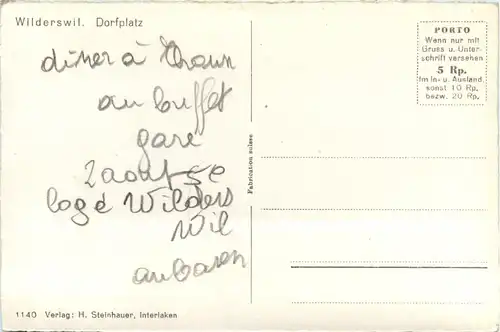 Wilderswil. Dorfplatz
diner à Thoun
au buffet
gare
2 aout 52
logé Wilders
wil
au baren
Fabrication suisse
PORTO
Wenn nur mit
Gruss u. Unter-
schrift versehen
5 Rp.
im In- u. Ausland,
sonst 10 Rp.
bezw. 20 Rp.
1140 Verlag: H. Steinhauer, Interlaken